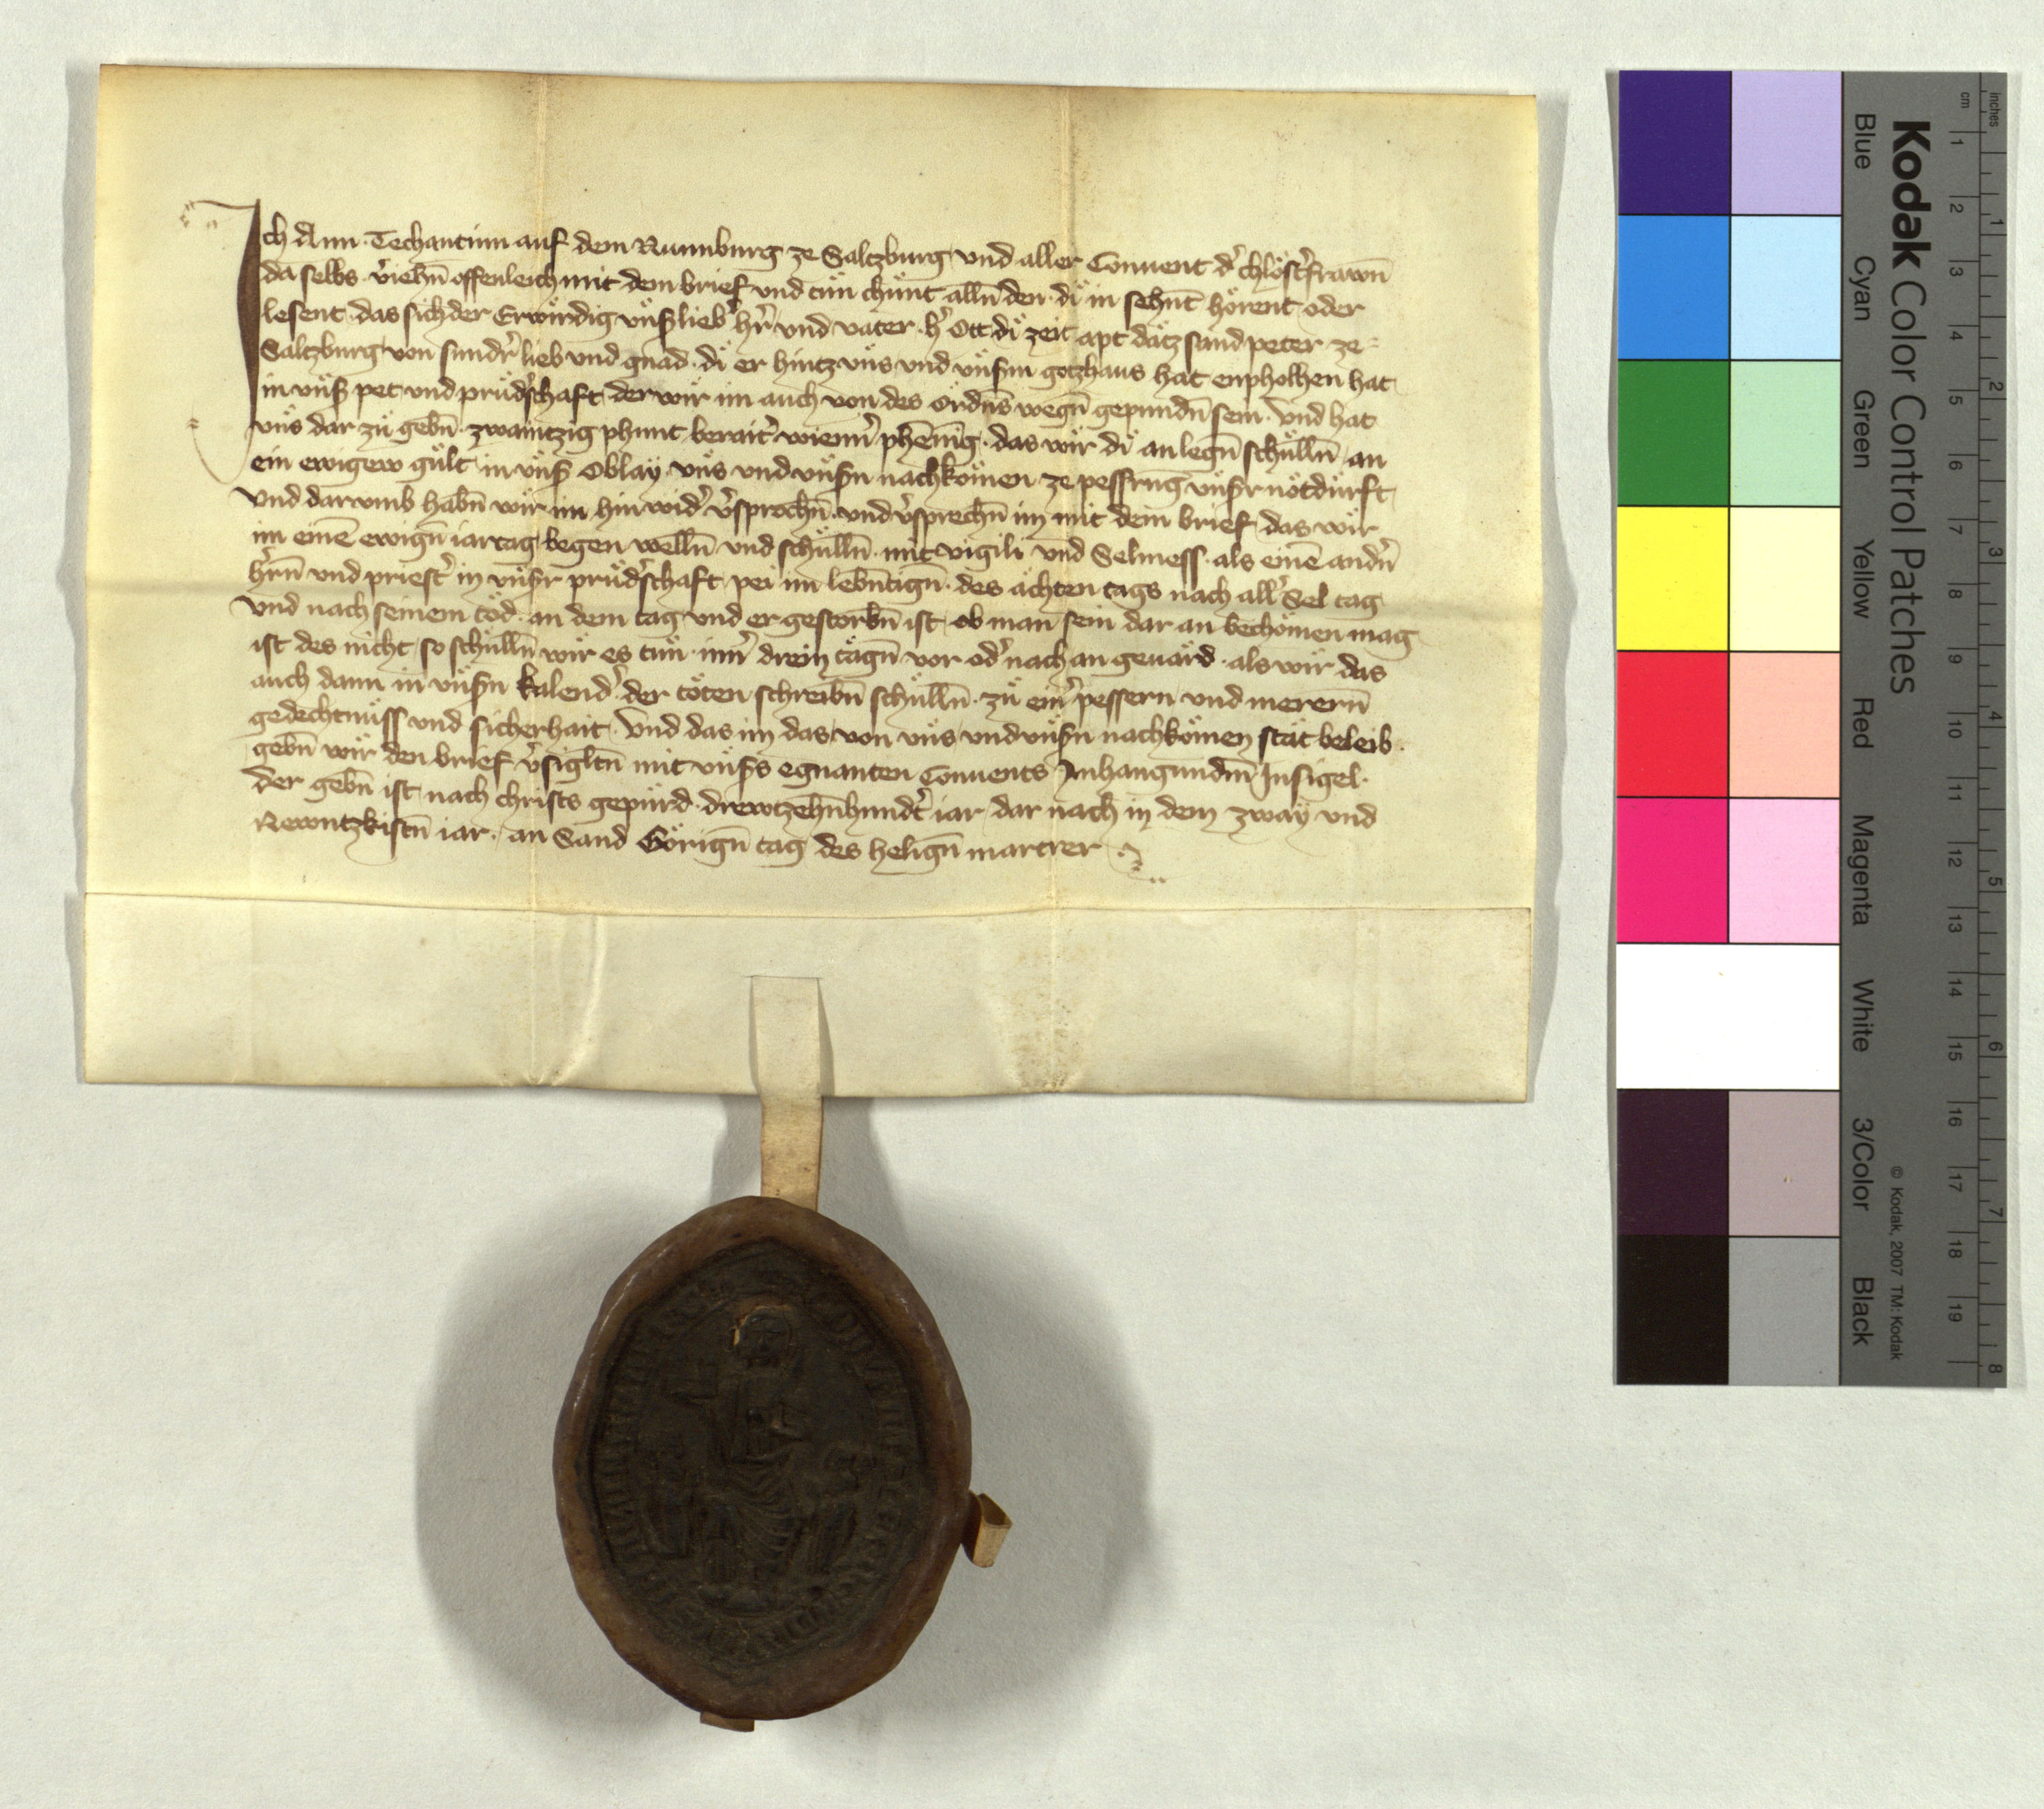 Ich Ann Techantinn auf dem Nunnburg ze Saltzburg und aller Convent dˀ chlöstˀfrawn̄
da selbs vˀiehn̄ offenleich mit dem brief und tün chünt alln̄ den di in sehn̄t hörent oder
lesent das sich der Erwirdig vnsˀ liebˀ hˀr und vater hˀ Ott di zeit apt datz sand peter ze
Saltzburg von sundrˀ lieb und gnad di er hintz vns und vnsˀm gotzhaus hat enpholhen hat
in vnsˀ pet und prüdˀschaft der wir im auch von des Ordn̄s wegn̄ gepundn̄ sein Und hat
vns dar zü gebn̄ zwaintzig phunt beraitˀ wiennˀ phēnīg das wir di an legn̄ schülln̄ an
ein ewigew gült in vnsˀ Oblay vns und vnsˀn nachkömen ze pessrūg vnsˀr nötdürft
Und darumb habn̄ wir im hin widˀ vˀsprochn̄ und vˀsprechn̄ im mit dem brief das wir
im einē ewign̄ iartag begen welln̄ und schülln̄ mit vigili und Selmess als einē andˀn̄
hˀrn̄ und priestˀ in vnsˀr prüdˀschaft pei im lebn̄tign̄ des achten tags nach allˀ Sel tag
Und nach seinem töd an dem tag und er gestorbn̄ ist ob man sein dar an bechömen mag
ist des nicht so schülln̄ wir es tün innˀ drein tägn̄ vor odˀ nach an geuärd als wir das
auch dann in vnsˀn kalendˀ der töten schreibn̄ schülln̄ zü einˀ pessern und merern̄
gedechtnüss und sicherhait Und das im das von vns und vnsˀn nachkömen stät beleib
gebn̄ wir den brief vˀsigltn̄ mit vnsˀs egnanten Convents Anhangundm̄ Insigel
Der gebn̄ ist nach christs gepürd drewtzehn̄hundˀt iar dar nach in dem zway und
Newntzkistn̄ iar an Sand Görign̄ tag des helign̄ martrer
Kodak Color Control Patches
Blue Cyan Green Yellow Red Magenta White 3/Color Black
© Kodak, 2007 TM: Kodak
inches 1 2 3 4 5 6 7 8
cm 1 2 3 4 5 6 7 8 9 10 11 12 13 14 15 16 17 18 19